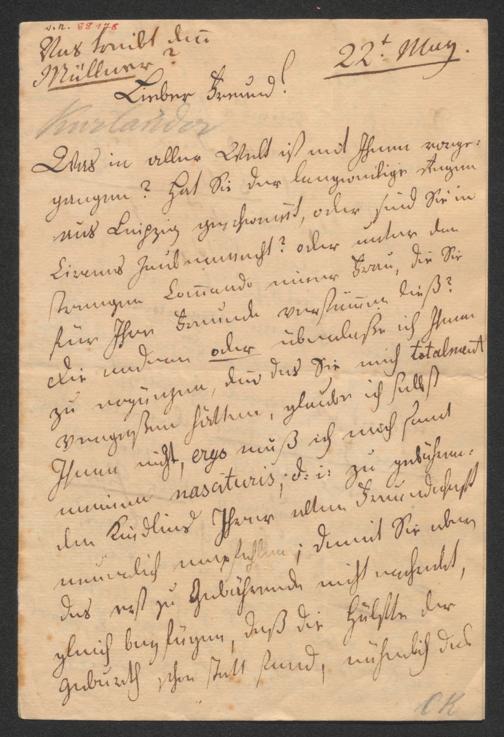 J.N. 88178
Was treibt denn
Müllner?
22t May.
Lieber Freund!
Kurländer
Was in aller Welt ist mit Ihnen vorge-
gangen? Hat Sie der langweilige
aus Leipzig oder sind Sie in
Zaubernacht? oder unter dem
strengen Commando einer Frau, die Sie
für Ihre Freunde verstummen ließ?
Die andern oder überlasse ich Ihnen
zu ergänzen, denn das Sie mich totalment
vergessen hätten, glaube ich selbst
Ihnen nicht, ergo muß ich mich samt
meinem nascituris, d: i: zu gebähren-
den Kindleins Ihrer alten Freundschaft
empfehlen; damit Sie aber
das erst zu Gebährende nicht
gleich beyfügen, daß die Hälfte der
Geburth schon statt fand, nähmlich das
CK